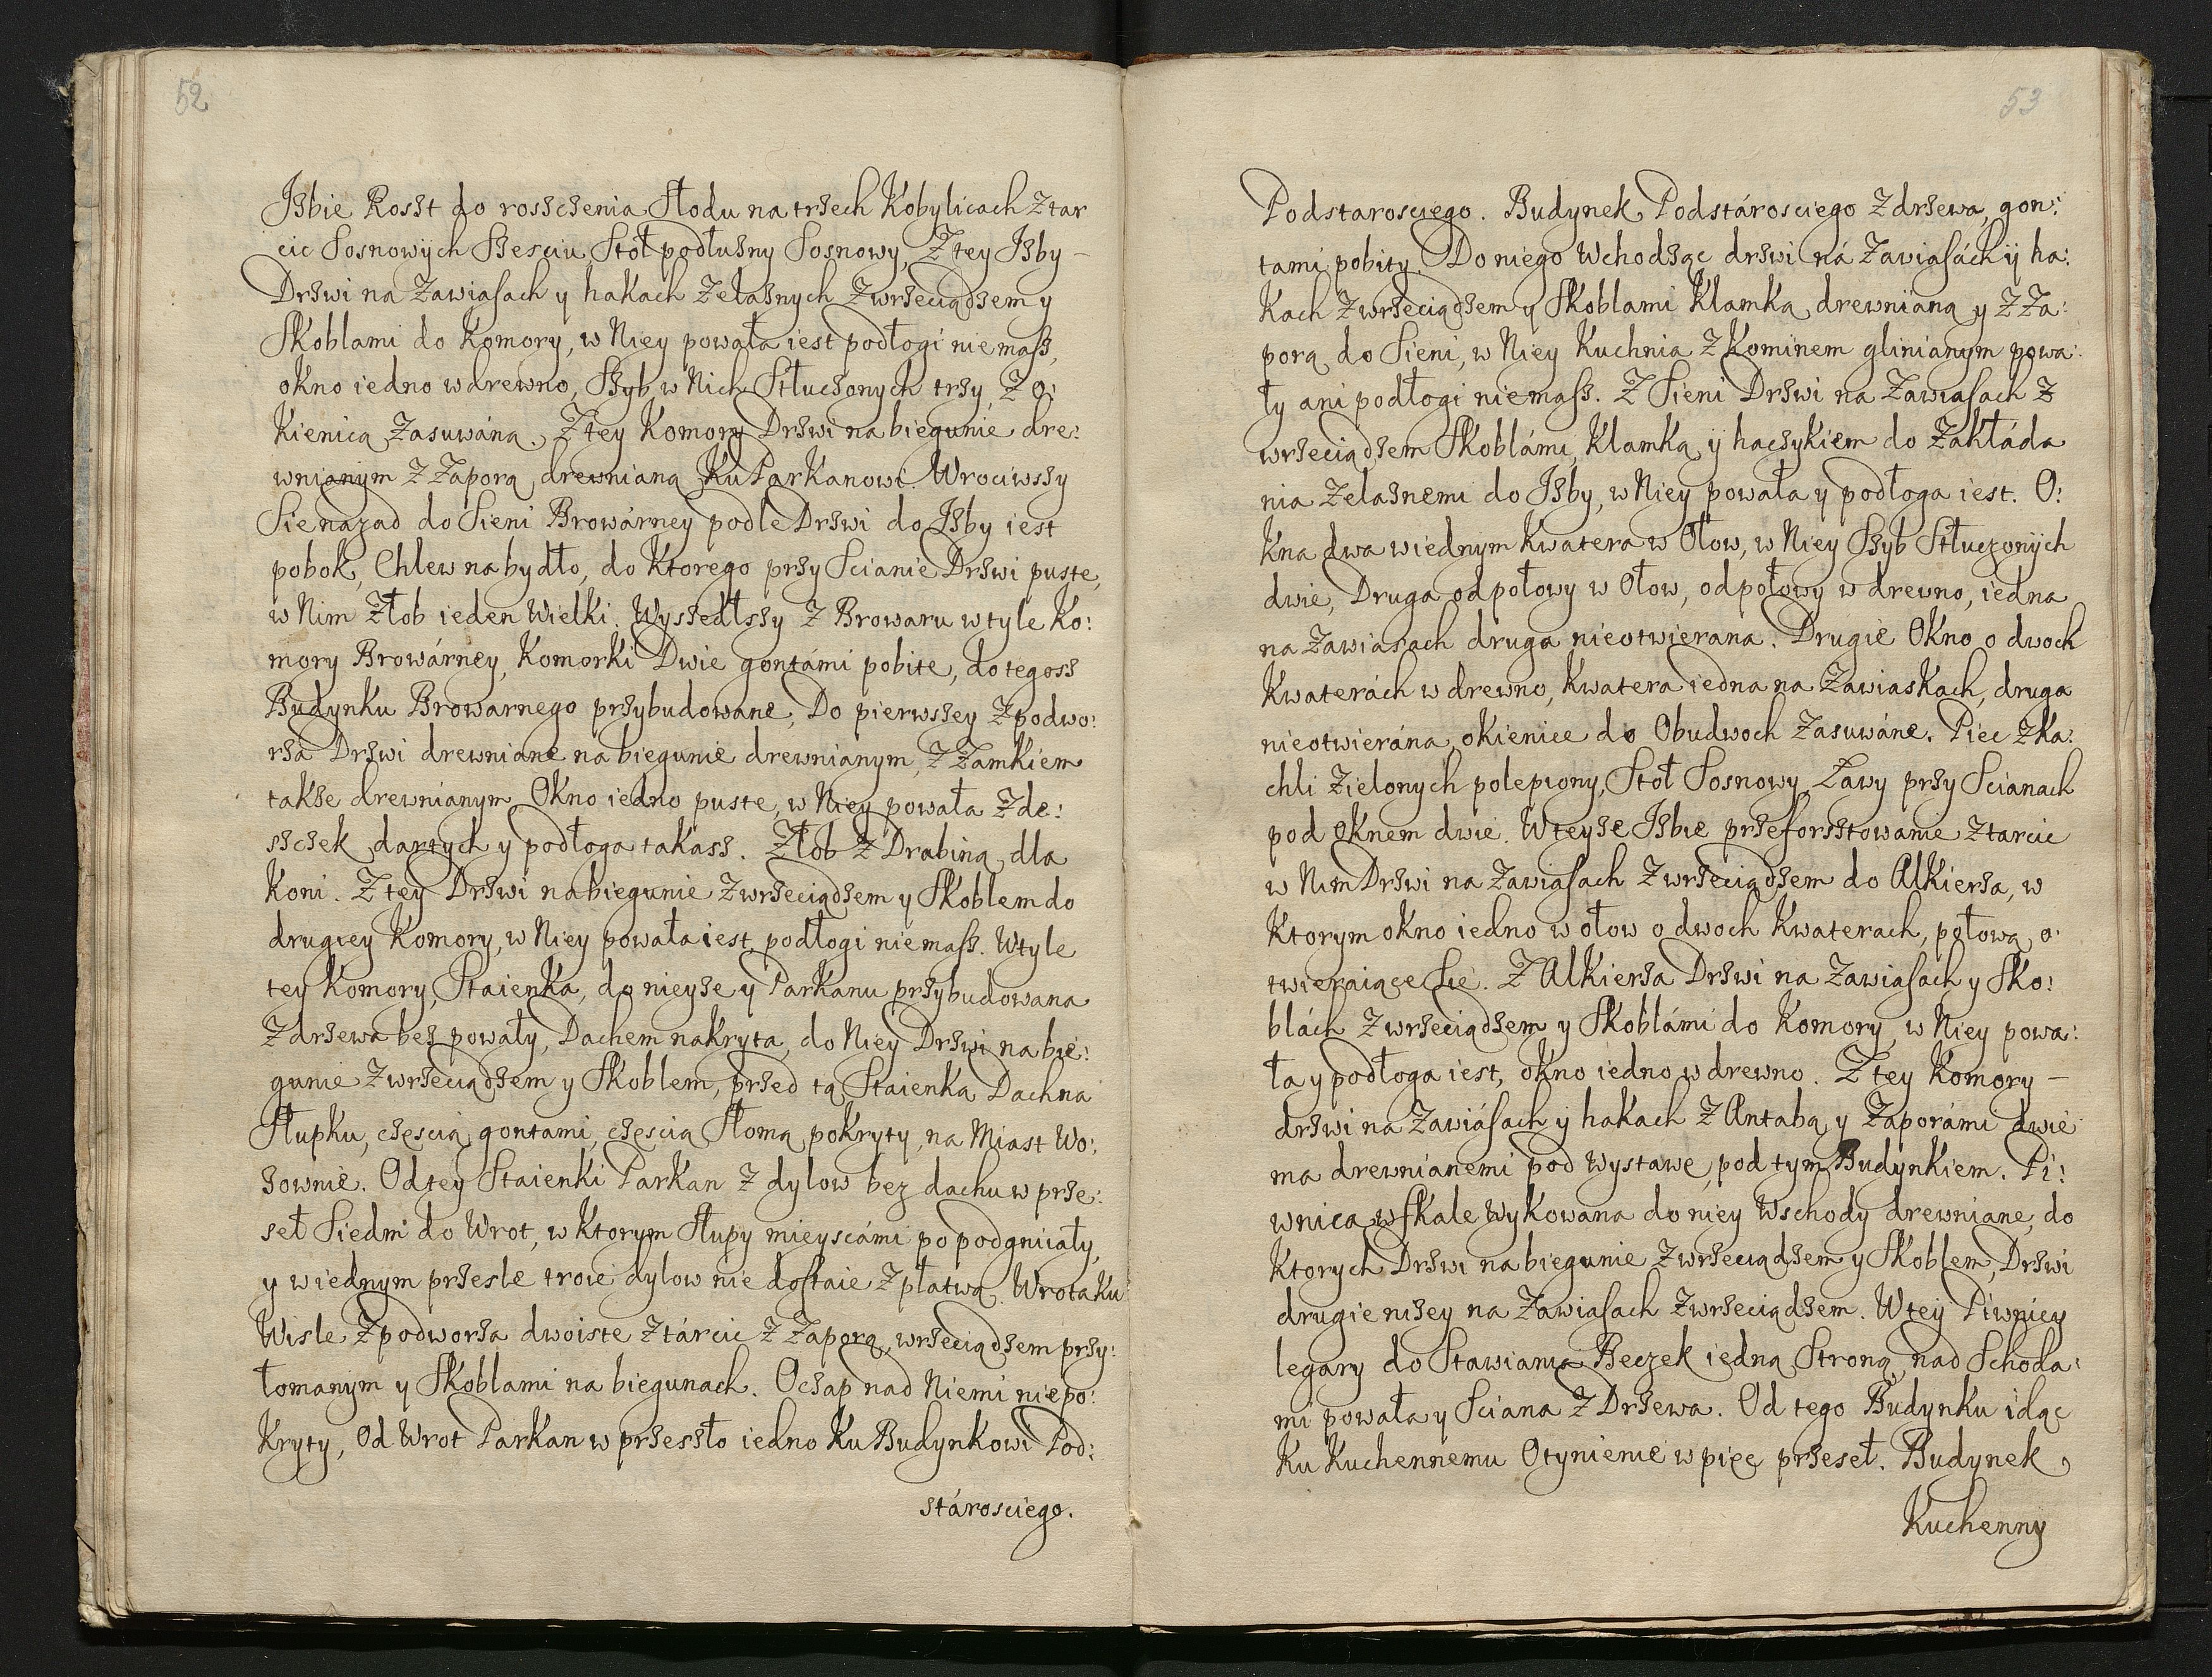 52
Jzbie Roszt do roszczenia Słodu na trzech Kobylicach z tar
cic Sosnowÿch Szesciu, Stoł podłużny Sosnowy, Z tey Jzby –
Drzwi na Zawiasach y hakach Zelaznych Z wrzeciądzem y
Skoblami do Komory, w Niey powała iest podłogi niemasz,
okno iedno w drewno, Szyb w Nich Stłuczonych trzy, Z o:
kienicą Zasuwáną. Z tey Komory Drzwi na biegunie dre:
wnianym Z Zaporą drewnianą Ku Parkanowi. Wrociwszy
Sie nazad do Sieni Browárney podle Drzwi do Jzby iest
pobok, Chlew na bydło, do Ktorego przy Scianie Drzwi puste,
w Nim Złob ieden Wielki. Wyszedłszy Z Browaru w tyle Ko:
mory Browárney, Komorki Dwie gontámi pobite, do tegosz
Budynku Browarnego przybudowane, Do pierwszey Z podwo:
rza Drzwi drewniane na biegunie drewnianym, Z Zamkiem
takze drewnianym, Okno iedno puste, w Niey powała Z de:
szczek dartych y podłoga takasz. Złob Z Drabiną dla
Koni. Z tey Drzwi na biegunie Z wrzeciądzem y Skoblem do
drugiey Komory, w Niey powała iest podłogi niemasz. W tyle
tey Komory, Staienka, do nieyze y Parkanu przybudowana
Z drzewa bez powały, Dachem nakryta, do Niey Drzwi na bie:
gunie Z wrzeciądzem y Skoblem, przed tą Staienką Dach na
Słupku, częscią gontami, częscią Słomą pokryty, na Miast Wo:
zownie. Od tey Staienki Parkan Z dylow bez dachu w prze:
seł Siedm do Wrot, w Ktorym Słupy mieyscámi popodgniiały,
y w iednym przesle troie dylow nie dostaie Z płatwą. Wrota Ku
Wisle Z podworza dwoiste Z tárcic Z Zaporą, wrzeciądzem przy:
łomanym y Skoblami na biegunach. Oczap nad Niemi niepo:
kryty, Od Wrot Parkan w przeszło iedno Ku Budynkowi Pod:
stárosciego.
53
Podstarosciego. Budynek Podstárosciego Z drzewa, gon:
tami pobity. Do niego Wchodząc drzwi ná Zawiasách ÿ ha:
kach Z wrzeciądzem y Skoblami Klamką drewnianą y Z Za:
porą do Sieni, w Niey Kuchnia Z Kominem glinianym powa:
ły ani podłogi niemasz. Z Sieni Drzwi na Zawiasach Z
wrzeciądzem Skoblámi, Klamką ÿ haczykiem do Zakłáda
nia Zelaznemi do Jzby, w Niey powała y podłoga iest. O:
kna dwa w iednym Kwatera w Ołow, w Niey Szyb Stłuczonÿch
dwie, Druga od połowy w Ołow, od połowy w drewno, iedna
na Zawiasach druga nieotwierana. Drugie Okno o dwoch
Kwaterách w drewno, Kwatera iedna na Zawiaskach, druga
nieotwierána, okienice do Obudwoch Zasuwáne. Piec Z ka:
chli Zielonych polepiony, Stoł Sosnowy, Ławy przy Scianach
pod oknem dwie. W teyze Jzbie przeforsztowanie Z tarcic
w Nim Drzwi na Zawiasach Z wrzeciądzem do Alkierza, w
Ktorym okno iedno w ołow o dwoch Kwaterach, połową o:
twieraiące Sie. Z Alkierza Drzwi na Zawiasach y Sko:
blách Z wrzeciądzem y Skoblámi do Komory, w Niey powa:
ła y podłoga iest, okno iedno w drewno. Z tey Komory –
drzwi na Zawiásach y hakach Z Antabą y Zaporámi dwie
ma drewnianemi pod Wystawę, pod tym Budynkiem. Pi:
wnica w Skale Wykowana do niey Wschody drewniane, do
Ktorych Drzwi na biegunie Z wrzeciądzem y Skoblem, Drzwi
drugie niżey na Zawiasach Z wrzeciądzem. W teÿ Piwnicy
legary do Stawiania Beczek iedną Stroną, nad Schoda:
mi powała y Sciana Z Drzewa. Od tego Budynku idąc
Ku Kuchennemu Otynienie w pięć przeseł. Budynek
Kuchenny